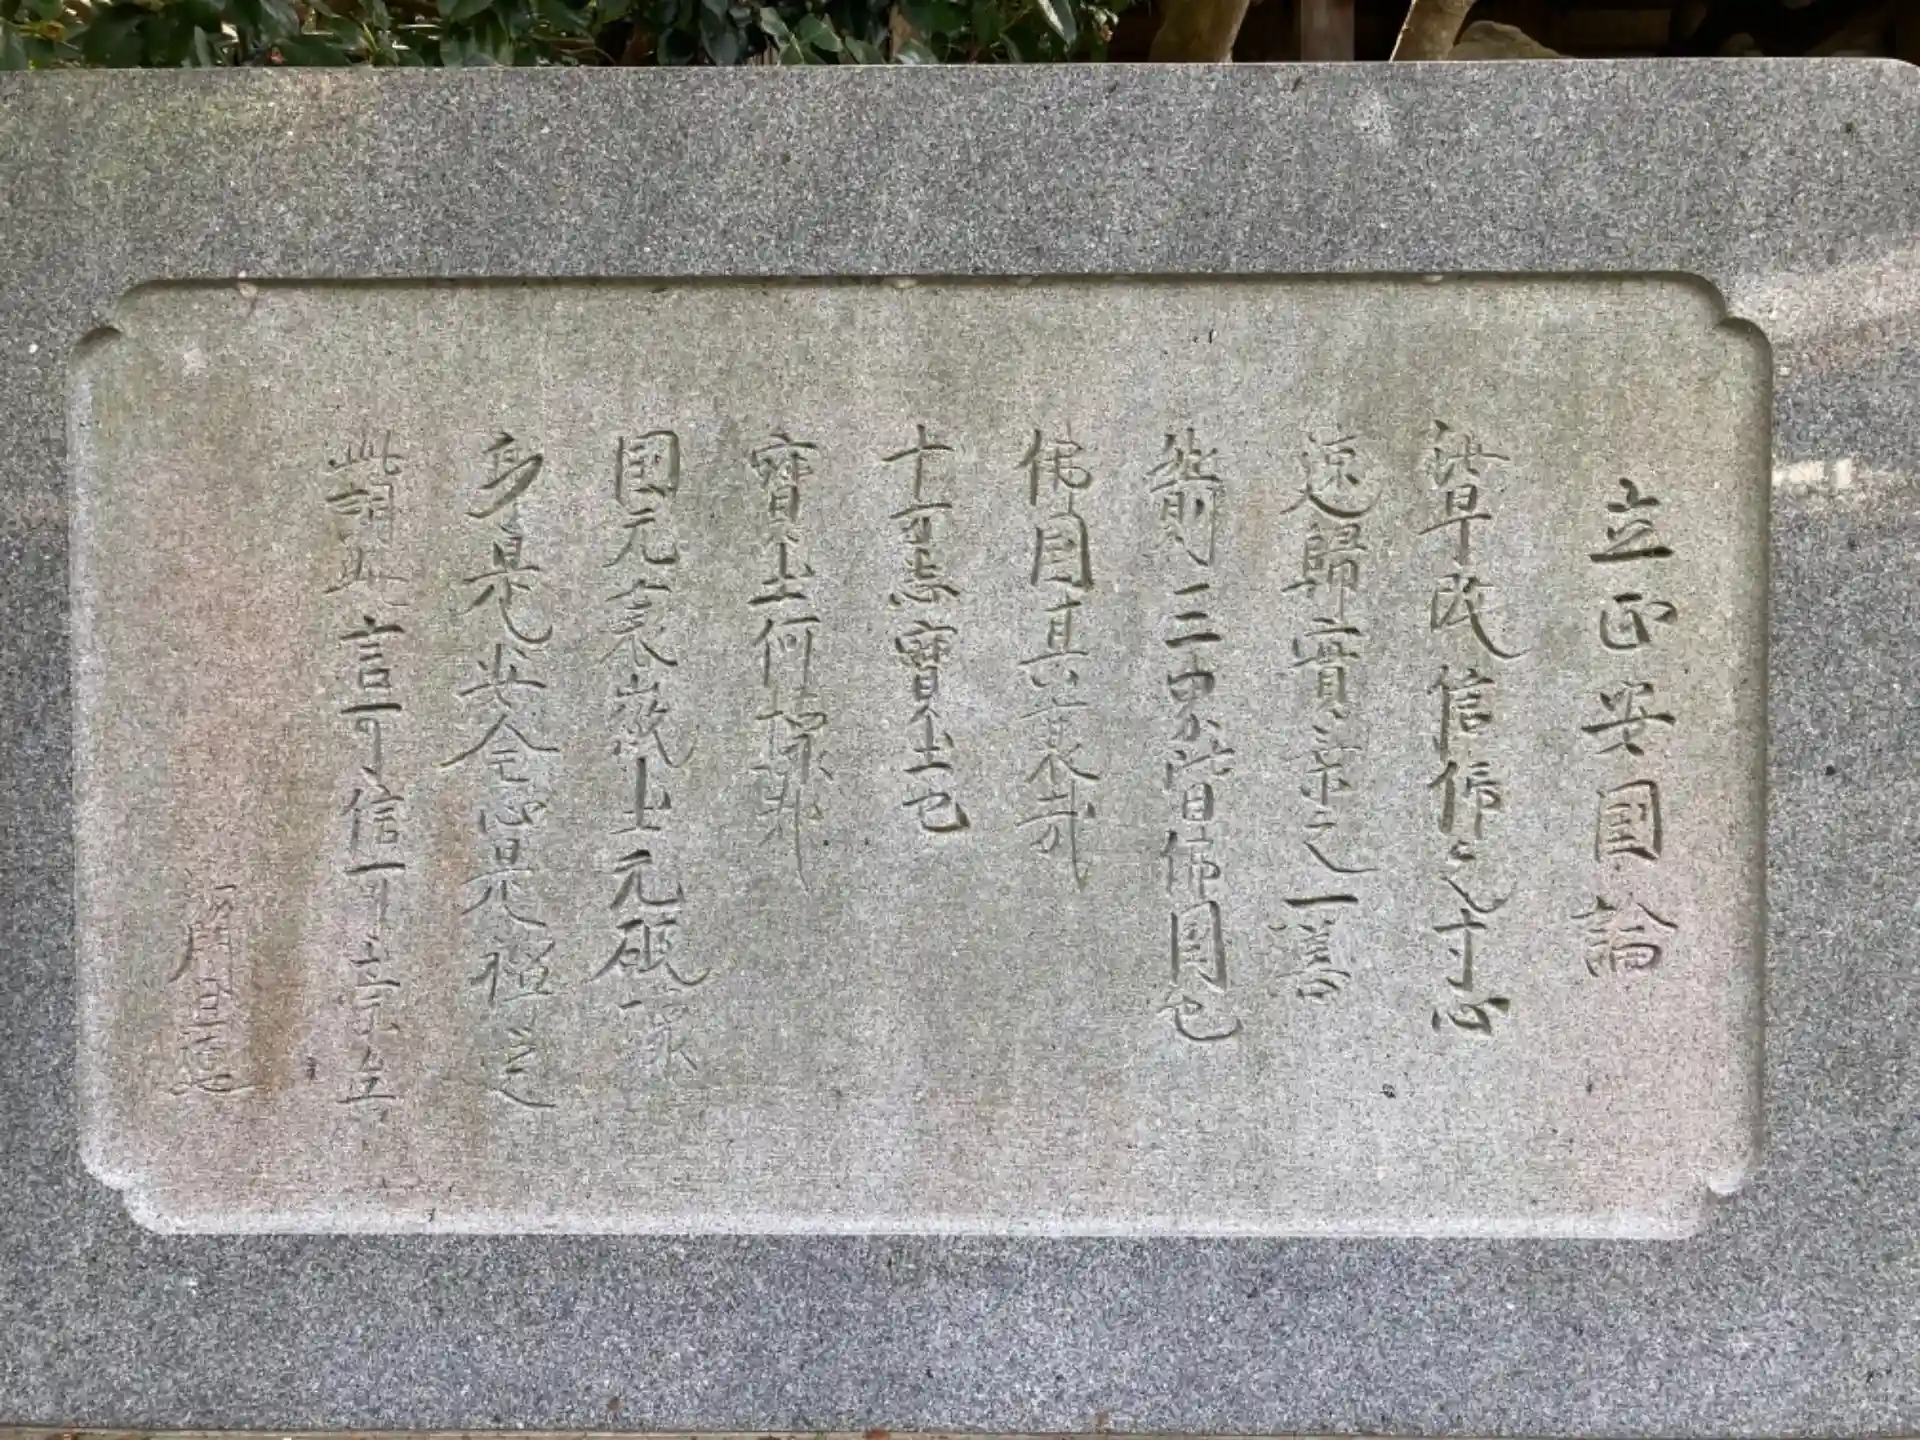 立正安国論
汝早改信仰之寸心
速歸實乗之一善
然則三界皆佛国也
佛国其衰哉
十方悉寶土也
寶土何壊耶
国无衰微土无破壊
身是安全心是禅定
此詞此言可信可崇矣
沙門日蓮